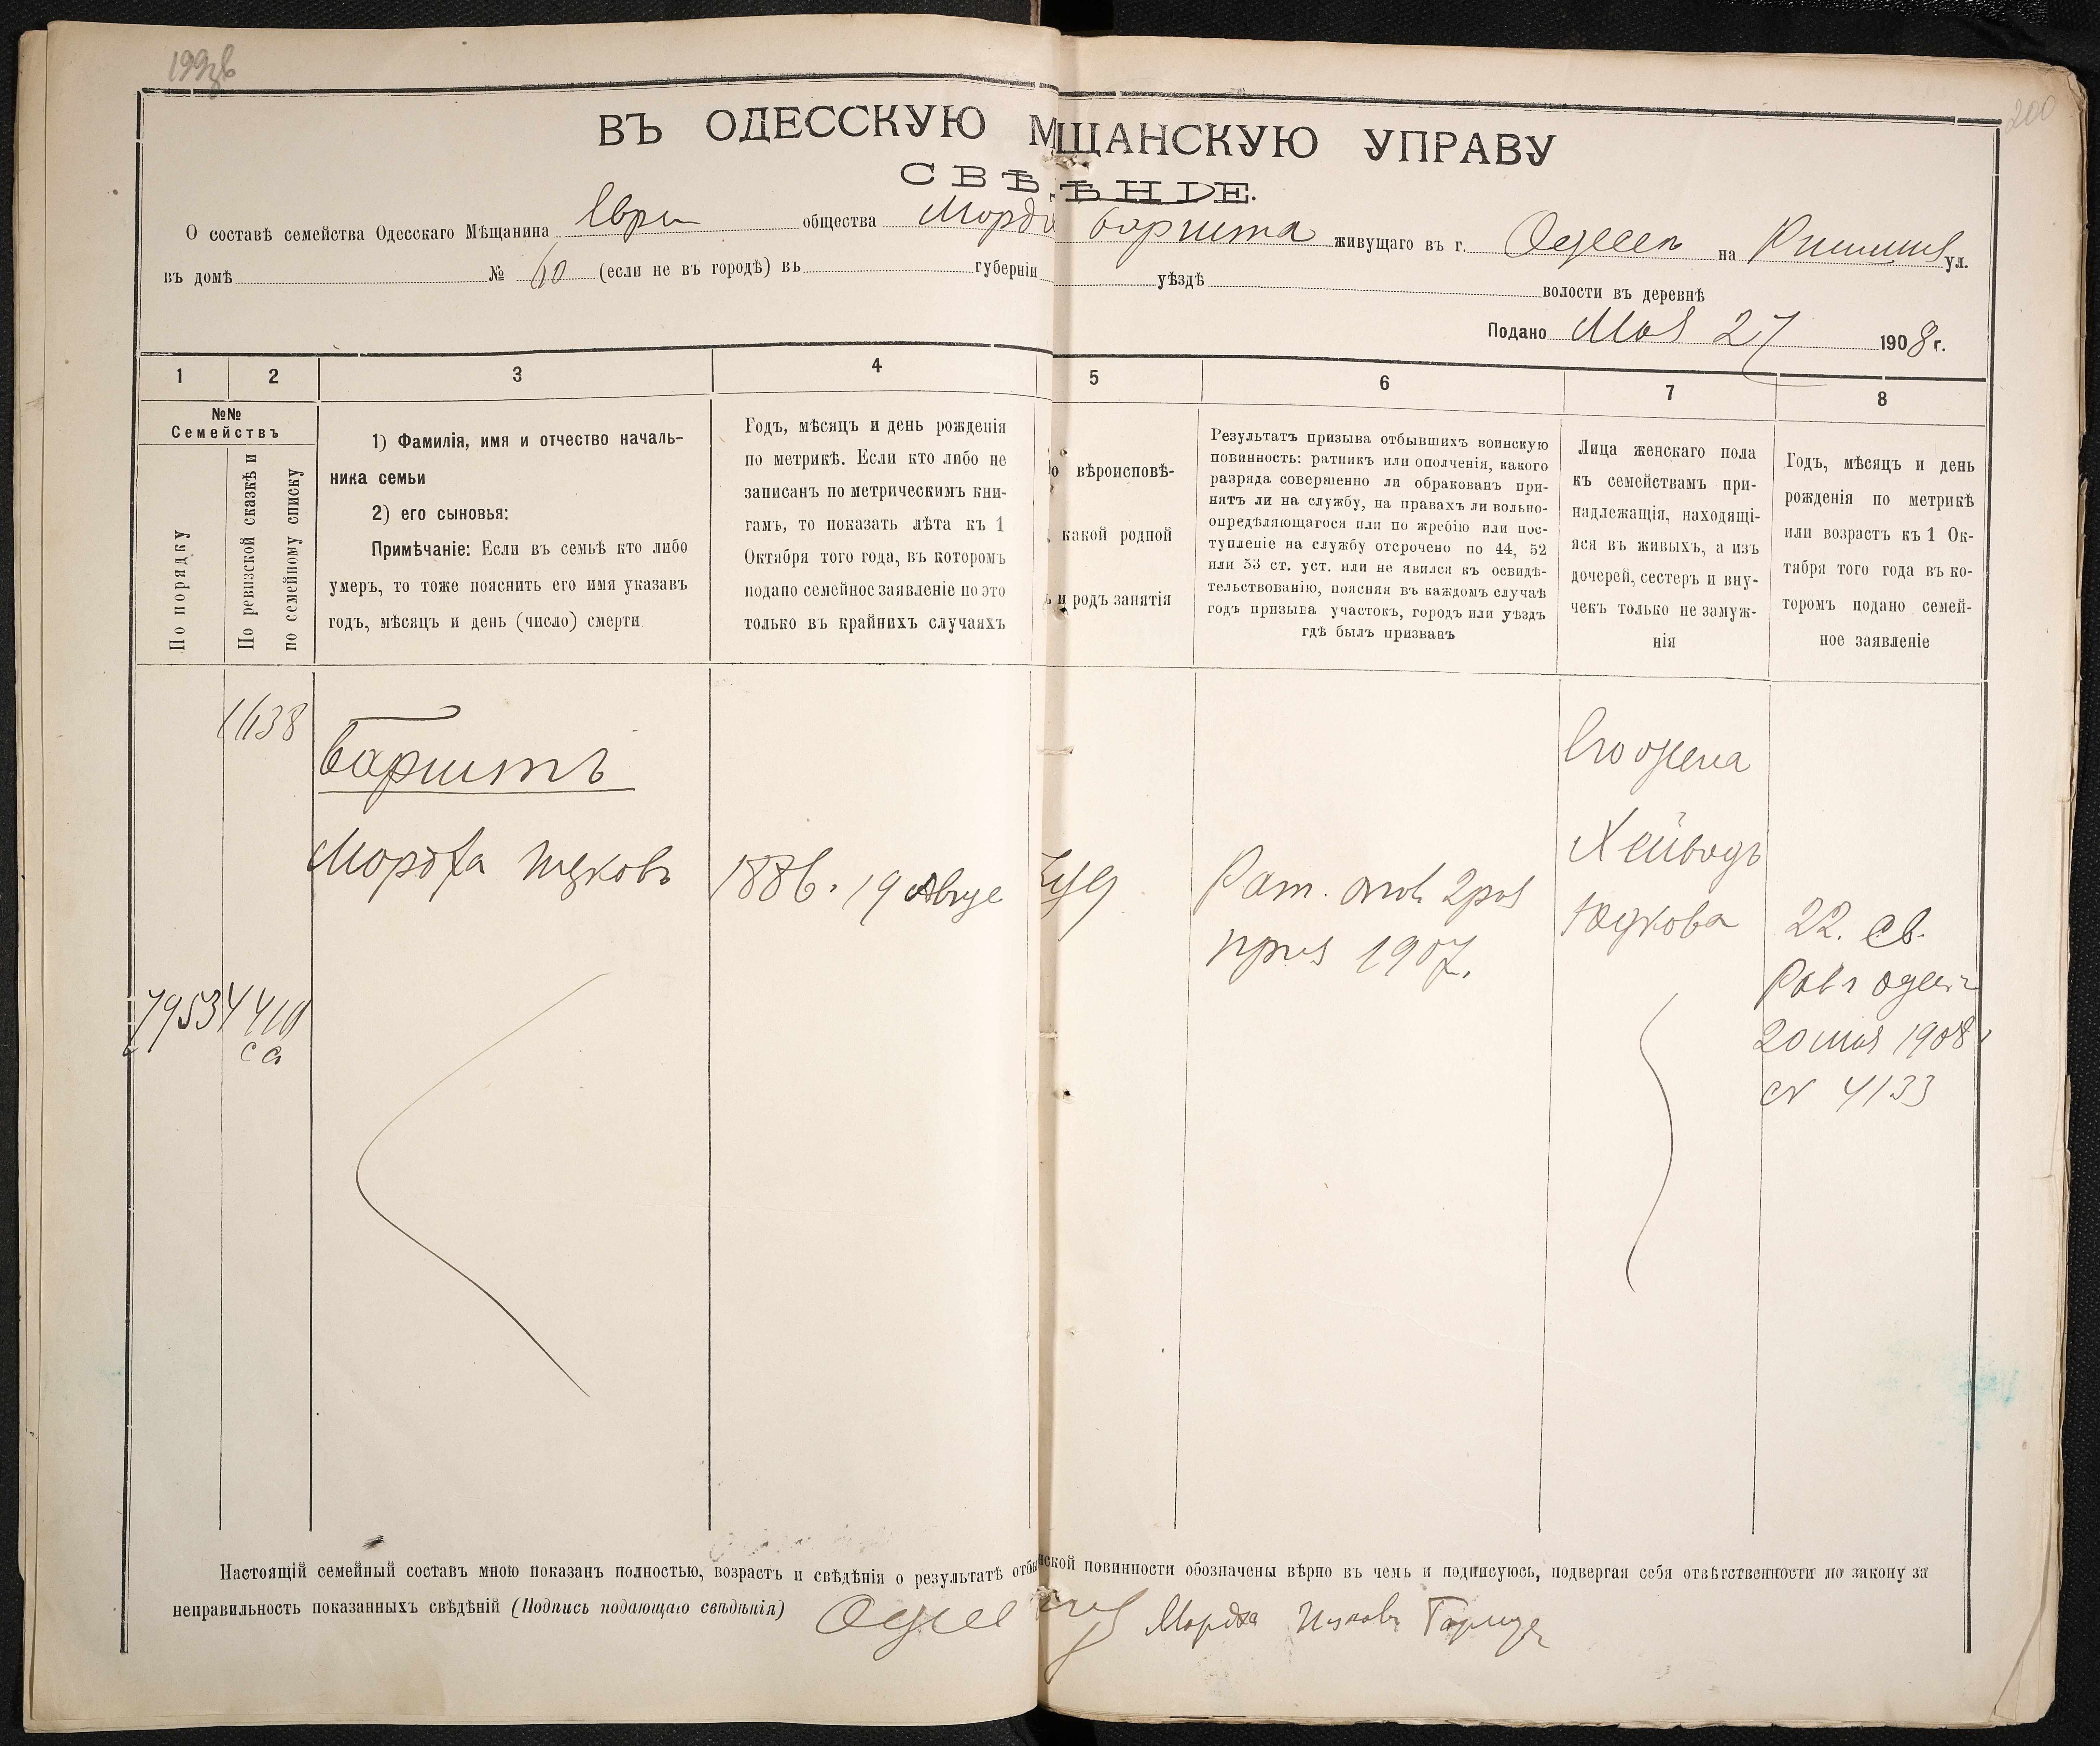 199об
200
ВЪ ОДЕССКУЮ МЩАНСКУЮ УПРАВУ
СВѢѢНІЕ.
О составѣ семейства Одесскаго Мѣщанина Евре общества Мордх живущаго въ г. Одессе на Ришельев ул.
въ домѣ № 60 (если не въ городѣ) въ губерніи уѣздѣ волости въ деревнѣ
Подано Мая 27 1908 г.
1 2 3 4 5 6 7 8
№№
Семействъ
По порядку
По ревизской сказкѣ и
по семейному списку
1) Фамилія, имя и отчество началь-
ника семьи
2) его сыновья:
Примѣчаніе: Если въ семьѣ кто либо
умеръ, то тоже пояснить его имя указавъ
годъ, мѣсяцъ и день (число) смерти
Годъ, мѣсяцъ и день рожденія
по метрикѣ. Если кто либо не
записанъ по метрическимъ кни-
гамъ, то показать лѣта къ 1
Октября того года, въ которомъ
подано семейное заявленіе но это
только въ крайнихъ случаяхъ
о вѣроисповѣ-
какой родной
и родъ занятія
Результатъ призыва отбывшихъ воинскую
повинность: ратникъ или ополченія, какого
разряда совершенно ли обракованъ при-
нятъ ли на службу, на правахъ ли вольно-
опредѣляющагося или по жребію или пос-
тупленіе на службу отсрочено по 44, 52
или 53 ст. уст. или не явился къ освидѣ-
тельствованію, поясняя въ каждомъ случаѣ
годъ призыва участокъ, городъ или уѣздъ
гдѣ былъ призванъ
Лица женскаго пола
къ семействамъ при-
надлежащія, находящі-
яся въ живыхъ, а изъ
дочерей, сестеръ и вну-
чекъ только не замуж-
нія
Годъ, мѣсяцъ и день
рожденія по метрикѣ
или возрастъ къ 1 Ок-
тября того года въ ко-
торомъ подано семей-
ное заявленіе
Мордха Ицковъ
1886. 19 Авгус
Іуд
Рат. опол 2 раз
приз 1907.
Его жена
Хейводъ
Юдкова
22. Св.
Рав г Одес
20 мая 1908
№ 4133
7953
4410
Настоящій семейный составъ мною показанъ полностью, возрастъ и свѣдѣнія о результатѣ отбынской повинности обозначены вѣрно въ чемъ и подписуюсь, подвергая себя отвѣтственности по закону за
неправильность показанныхъ свѣдѣній (Подпись подающаго свѣдѣнія) Мордха Ицковъ